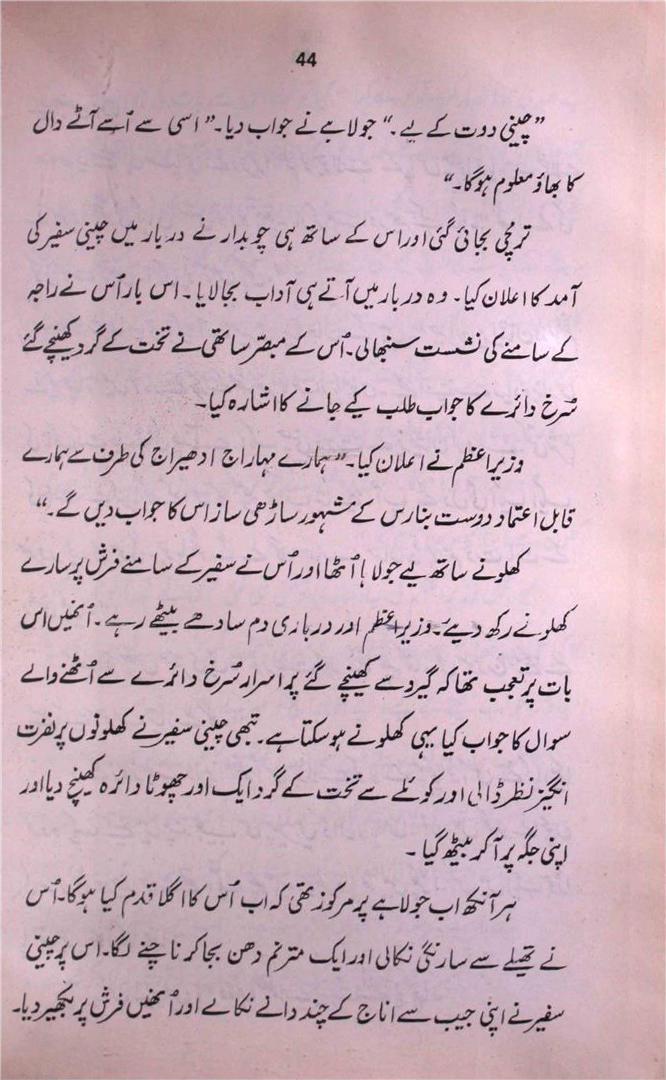 44
”چینی دوت کے لیے۔“ جولاہے نے جواب دیا۔” اسی سے اُسے آٹے دال
کا بھاؤ معلوم ہوگا۔“
ترمچی بجائی گئی اور اس کے ساتھ ہی چوبدار نے دربار میں چینی سفیر کی
آمد کا اعلان کیا۔ وہ دربار میں آتے ہی آداب بجا لایا۔ اس بار اُس نے راجہ
کے سامنے کی نشست سنبھالی۔ اُس کے مبصّر ساتھی نے تخت کے گرد کھنچے گئے
سُرخ دائرے کا جواب طلب کیے جانے کا اشارہ کیا۔
وزیر اعظم نے اعلان کیا۔” ہمارے مہاراج ادھیراج کی طرف سے ہمارے
قابل اعتماد دوست بنارس کے مشہور ساڑھی ساز اس کا جواب دیں گے۔“
کھلونے ساتھ لیے جولاہا اُٹھا اور اُس نے سفیر کے سامنے فرش پر سارے
کھلونے رکھ دیئے۔ وزیر اعظم اور درباری دم سادھے بیٹھے رہے۔ اُنھیں اس
بات پر تعجب تھا کہ گیرو سے کھینچے گئے پر اسرار سُرخ دائرے سے اُٹھنے والے
سوال کا جواب کیا یہی کھلونے ہو سکتا ہے۔ تبھی چینی سفیر نے کھلونوں پر نفرت
انگیز نظر ڈالی اور کوئلے سے تخت کے گرد ایک اور چھوٹا دائرہ کھینچ دیا اور
اپنی جگہ پر آکر بیٹھ گیا۔
ہر آنکھ اب جولاہے پر مرکوز تھی کہ اب اُس کا اگلا قدم کیا ہوگا۔ اُس
نے تھیلے سے سارنگی نکالی اور ایک مترنم دھن بجا کر ناچنے لگا۔ اس پر چینی
سفیر نے اپنی جیب سے اناج کے چند دانے نکالے اور اُنھیں فرش پر بکھیر دیا۔